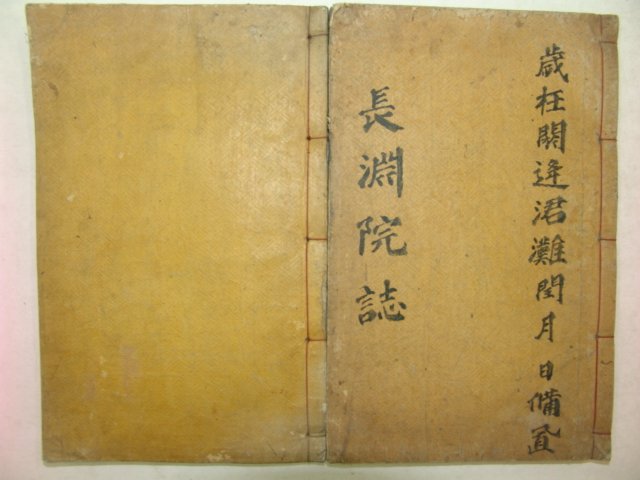 歲在閼逢涒灘閏月 日備置
長淵院誌